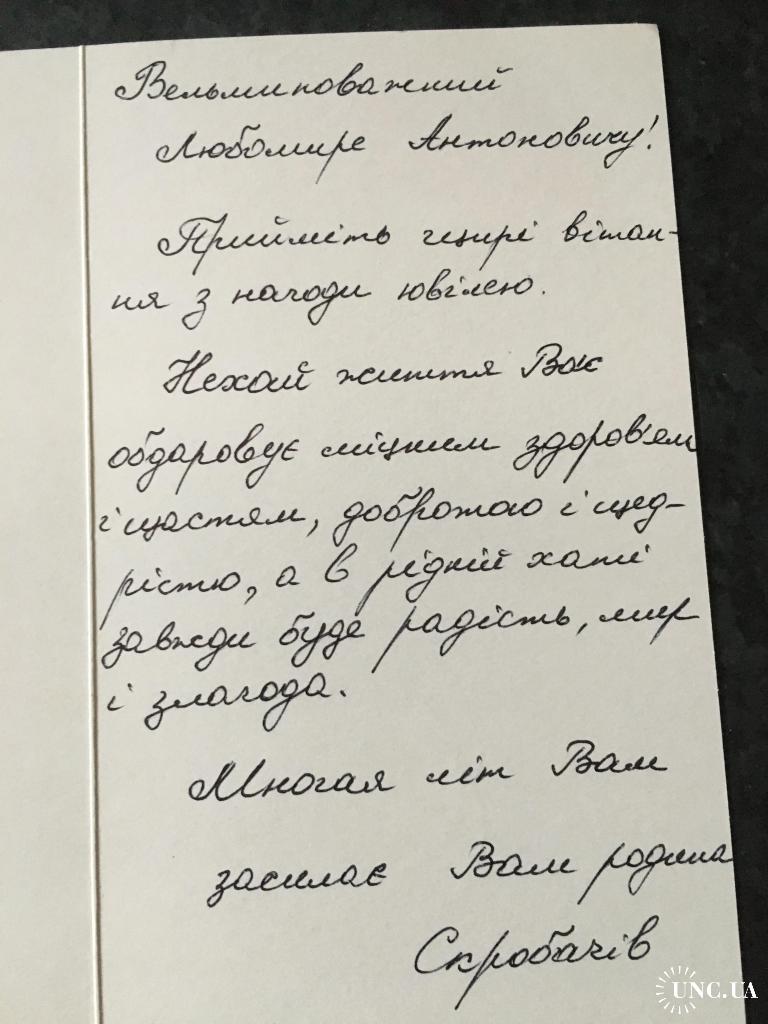 Вельмиповажний
Любомире Антоновичу!
Прийміть щирі вітан-
ня з нагоди ювілею.
Нехай життя Вас
обдаровує міцним здоров'ям
і щастям, добротою і щед-
рістю, а в рідній хаті
завжди буде радість, мир
і злагода.
Многая літ Вам
засилає Вам родина
Скробачів
UNC.UA